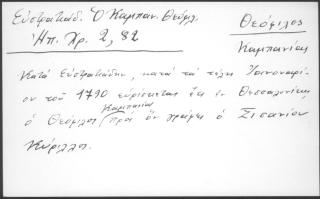 Εὐστρατιάδ. Ὁ Καμπαν. Θεόφιλ.
Ἠπ. Χρ. 2, 82
Θεόφιλος
Καμπανίας
Κατὰ Εὐστρατιάδην, κατὰ τὰ τέλη Ἰανουαρί-
ου τοῦ 1790 εὑρίσκεται ἔτι ἐν Θεσσαλονίκῃ
Καμπανίας
ὁ Θεόφιλος (πρὸς ὃν γράφει ὁ Σισανίου
Κύριλλος.